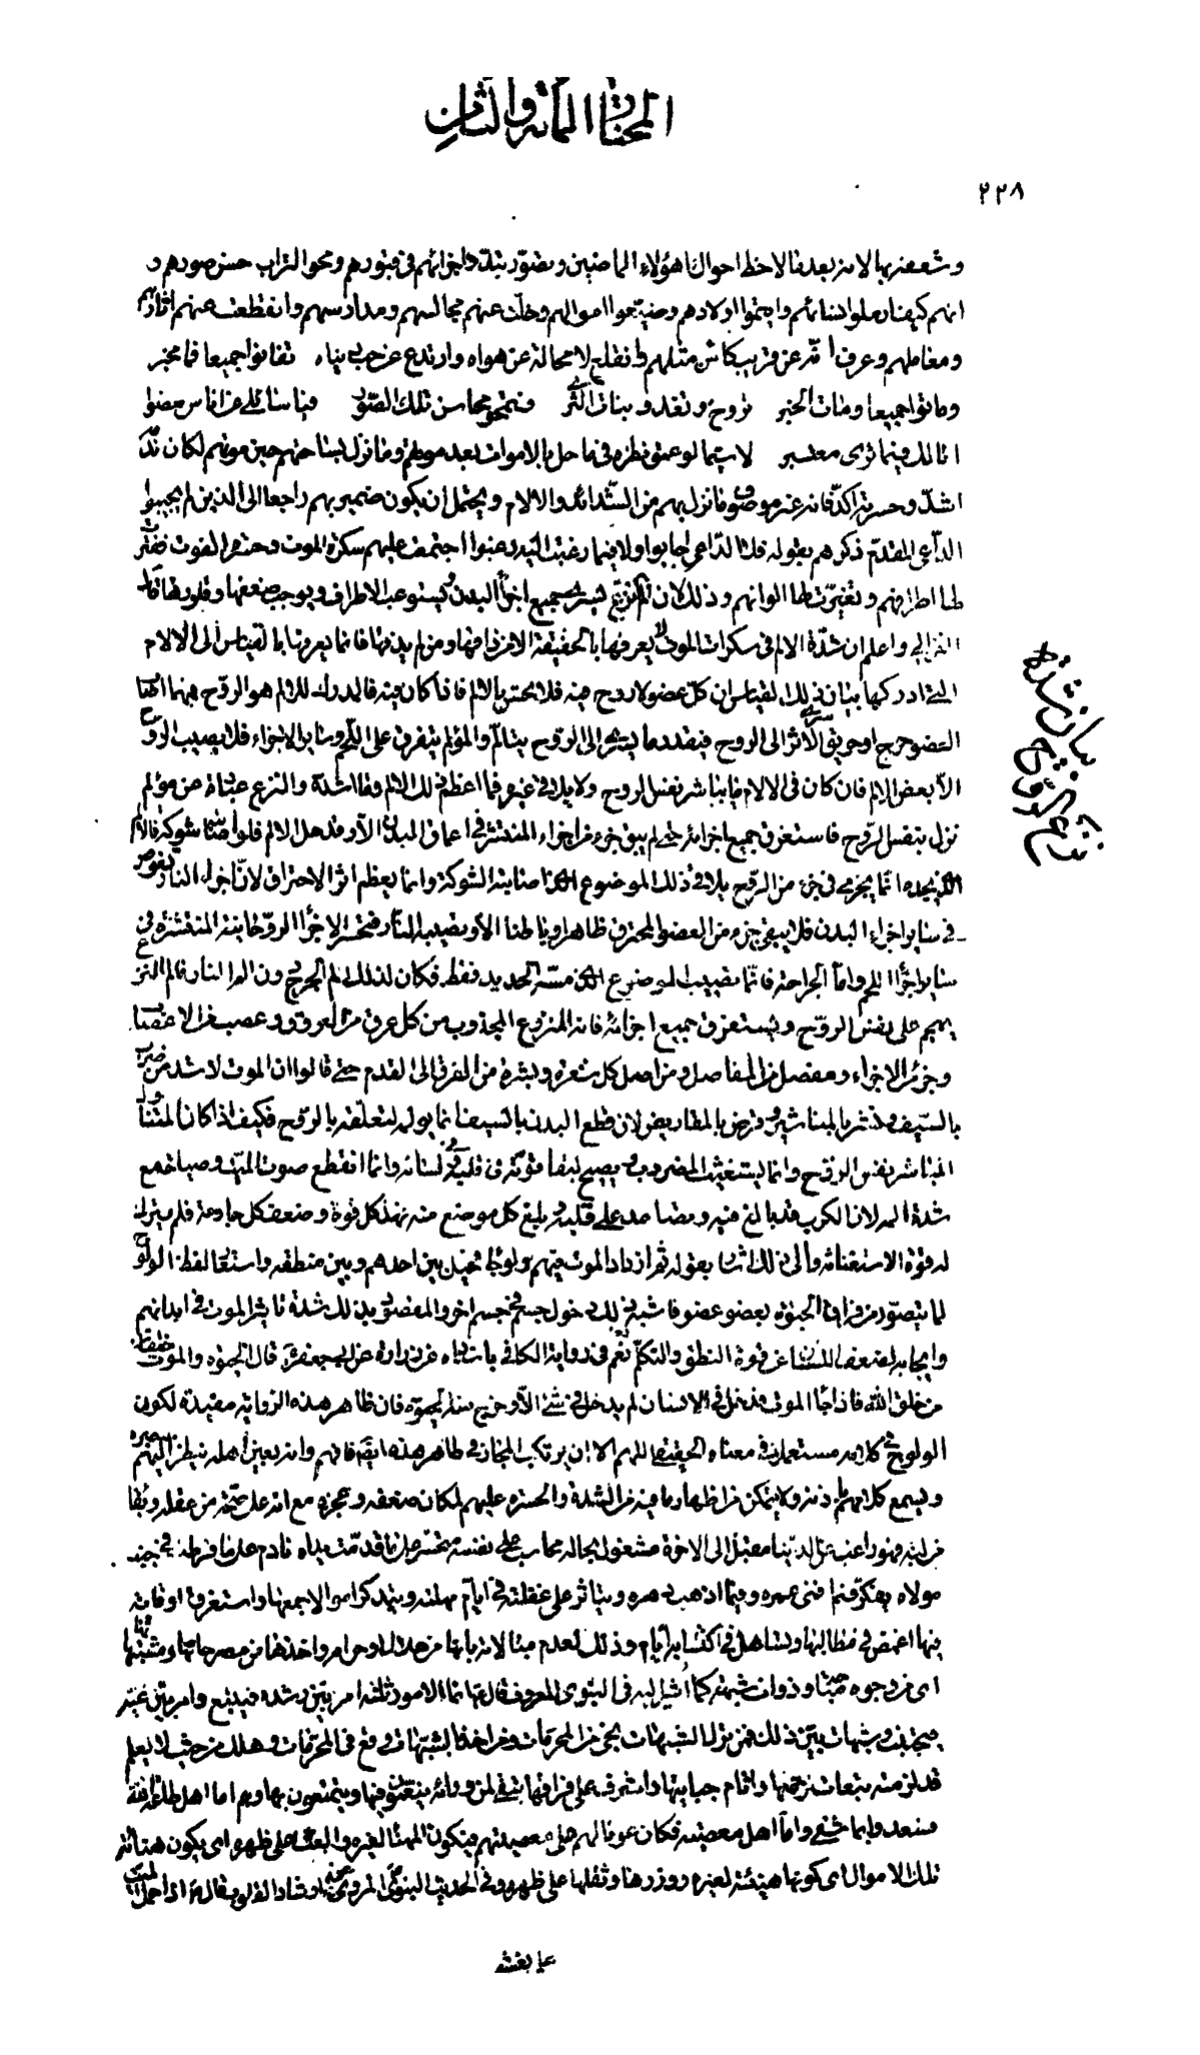 المختار المائة والثامن
٢٢٨
وشعف بها لانه بعد ما لاحظ احوال هؤلاء الماضين وتصور تبدد اجزائهم فى قبورهم ومحو التراب حسن صورهم و
انهم كيف ارملوا نسائهم وايتموا اولادهم وضيعوا اموالهم وخلت عنهم مجالسهم ومدارسهم وانقطعت عنهم آثارهم
ومعاطهم وعرف انه عن قريب كائن مثلهم انقلع لا محالة عن هواه وارتدع عن حب دنياه تفانوا جميعا فما مخبر
وماتوا جميعا ومات الخبر تروح وتغدو بنات الثرى فتمحو محاسن تلك الصور فيا سائلى عن اناس مضوا
اما لك فيما ترى معتبر لا سيما لو عمق نظره فى ما حل بالاموات بعد موتهم وما نزل بساحتهم حين موتهم لكان
اشد وحسرته آكد فانه غير موصوف ما نزل بهم من الشدائد والآلام ويحتمل ان يكون ضمير بهم راجعا الى الذين لم يجيبوا
الداعى المتقدم ذكرهم بقوله فلا الداعى اجابوا ولا فيما رغبت اليه رغبوا اجتمعت عليهم سكرة الموت وحسرة الفوت ففترت
لها اطرافهم وتغيرت لها الوانهم وذلك لان الم النزع يسرى جميع اجزاء البدن ويستوعب الاطراف ويوجب ضعفها وفتورها قال
الغزالى واعلم ان شدة الالم فى سكرات الموت لا يعرفها بالحقيقة الا من ذاقها ومن لم يذقها فانما يعرفها بالقياس الى الآلام
التى ادركها بيان ذلك القياس ان كل عضو لا روح فيه فلا يحس بالالم فاذا كان فيه فالمدرك للالم هو الروح فمهما اصاب
العضو جرح او حريق سرى الاثر الى الروح فبقدر ما يسرى الى الروح يتألم والمولم يتفرق على اللحم والدم وسائر الاجزاء فلا يصيب الروح
الا بعض الالم فان كان فى الآلام ما يباشر نفس الروح ولا يلاقى غيره فما اعظم ذلك الالم وما اشده والنزع عبارة عن مولم
نزل بنفس الروح فاستغرق جميع اجزائه حتى لم يبق جزء من اجزاء المنتشر فى اعماق البدن الا وقد حل الالم فلو اصابته شوكة فالالم
الذى يجده انما يجرى فى جزء من الروح يلاقى ذلك الموضع الذى اصابته الشوكة وانما يعظم اثر الاحتراق لان اجزاء النار تغوص
فى سائر اجزاء البدن فلا يبقى جزء من العضو المحترق ظاهرا وباطنا الا وتصيبه النار فتحسه الاجزاء الروحانية المنتشرة فى
سائر اجزاء اللحم واما الجراحة فانما تصيب الموضع الذى مسه الحديد فقط فكان لذلك الم الجرح دون الم النار فالم النزع
يهجم على نفس الروح ويستغرق جميع اجزائه فانه المنزوع المجذوب من كل عرق من العروق وعصب من الاعصاب
وجزء من الاجزاء ومفصل من المفاصل ومن اصل كل شعرة وبشرة من الفرق الى القدم حتى قالوا ان الموت لاشد من ضرب
بالسيف ونشر بالمناشير وقرض بالمقاريض لان قطع البدن بالسيف انما يولم لتعلقه بالروح فكيف اذا كان المتناول
المباشر نفس الروح وانما يستغيث المضروب ويصيح لبقاء قوته فى قلبه وفى لسانه وانما انقطع صوت الميت وصياحه مع
شدة المه لان الكرب قد بالغ فيه وتصاعد على قلبه وبلغ كل موضع منه فهد كل قوة وضعف كل جارحة فلم يترك
له قوة الاستغاثة والى ذلك اشار بقوله ثم ازداد الموت فيهم ولوجا فحيل بين احدهم وبين منطقه واستعار لفظ الولوج
لما يتصور من فراق الحيوة بعضو عضو فاشبه ذلك دخول جسم فى جسم آخر والمقصود بذلك شدة تاثير الموت فى ابدانهم
وايجابه لضعف اللسان عن قوة النطق والتكلم نعم فى رواية الكافى باسناده عن زرارة عن ابى جعفر قال الحيوة والموت خلقان
من خلق الله فاذا جاء الموت فدخل فى الانسان لم يدخل فى شئ الا وخرج منه الحيوة فان ظاهر هذه الرواية مفيدة لكون
الولوج فى كلامه مستعملا فى معناه الحقيقى اللهم الا ان يرتكب المجاز فى ظاهر هذه ايضا فافهم وانه لبين اهله ينظر اليهم ببصره
ويسمع كلامهم باذنه ولا يتمكن من اظهار ما فيه من الشدة والحسرة عليهم لمكان ضعفه وعجزه مع انه على صحة من عقله وبقاء
من لبه فهو راغب عن الدنيا مقبل الى الآخرة مشغول بحاله محاسب على نفسه متحسر على ما قدمت يداه نادم على ما فرط فى جنب
مولاه يفكر فيما فنى عمره وفيما اذهب دهره ويتاثر على غفلته فى ايام مهلته ويتذكر اموالا جمعها واستغرق اوقاته
فيها اغمض فى مطالبها وتساهل فى اكتسابها وذلك لعدم مبالاته باتها من حلال او حرام واخذها من مصرحاتها ومشتبهاتها
اى من وجوه مباحة وذوات شبهة كما اشير اليه فى النبوى المعروف قال انما الامور ثلثة امر بين رشده فيتبع وامر بين غيه
فيجتنب وشبهات بين ذلك فمن ترك الشبهات نجى من المحرمات ومن اخذ بالشبهات وقع فى المحرمات وهلك من حيث لا يعلم
قد لزمته تبعات جمعها واثام جبايتها واشرف على فراقها تبقى لمن ورائه ينعمون فيها ويتمتعون بها وهم اما اهل طاعة الله
فسعدوا بما شقى واما اهل معصيته فكان عونا لهم على معصيتهم فيكون المهنأ لغيره والعبء على ظهره اى يكون هنائة
تلك الاموال اى كونها هنيئة لغيره ووزرها وثقلها على ظهره وفى الحديث النبوى المروى عن ارشاد القلوب قال اذا حمل الميت
على نعشه
بيان شدة نزع الروح